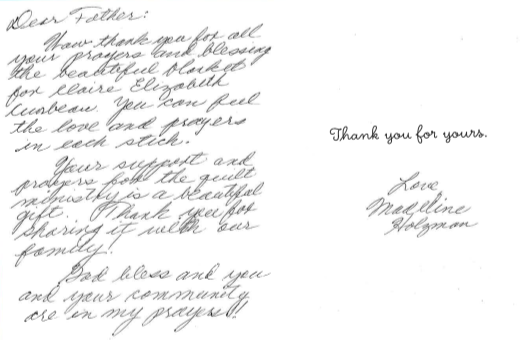 Dear Father:
Wow thank you for all
your prayers and blessing
the beautiful blanket
for Claire Elizabeth
You can feel
the love and prayers
in each stick.
Your support and
prayers for the quilt
ministry is a beautiful
gift. Thank you for
sharing it with our
family!
God bless and you
and your community
are in my prayers!!
Thank you for yours.
Love
Madeline
Holzman